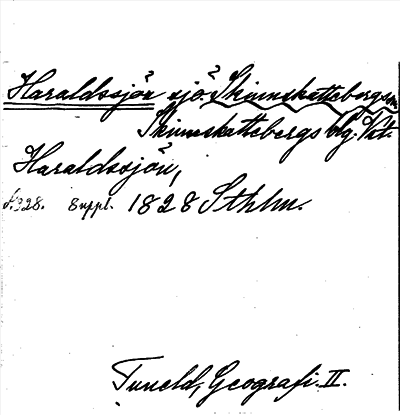 Haraldssjön sjö. Skinnskattebergs sn.
Skinnskattebergs blg. Vstt.
Haraldssjön,
s. 328. 8 uppl. 1828 Sthlm.
Tuneld, Geografi. II.